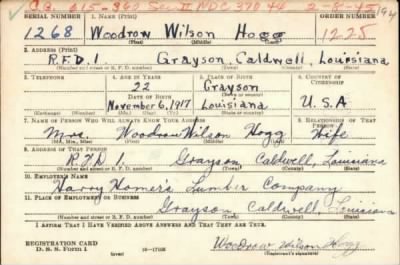 C.B. 615-360 Sec II NDC 370 44 2-8-45
194
SERIAL NUMBER 1. NAME (Print) ORDER NUMBER
1268 Woodrow Wilson Hogg 1225
(First) (Middle) (Last)
2. ADDRESS (Print)
R.F.D. 1. Grayson, Caldwell, Louisiana
(Number and street or R. F. D. number) (Town) (County) (State)
3. TELEPHONE 4. AGE IN YEARS 5. PLACE OF BIRTH 6. COUNTRY OF CITIZENSHIP
22 Grayson
DATE OF BIRTH (Town or county)
November 6, 1917 Louisiana U.S.A
(Exchange) (No.) (Mo.) (Day) (Yr.) (State or country)
7. NAME OF PERSON WHO WILL ALWAYS KNOW YOUR ADDRESS 8. RELATIONSHIP OF THAT PERSON
Mrs. Woodrow Wilson Hogg Wife
(Mr., Mrs., Miss) (First) (Middle) (Last)
9. ADDRESS OF THAT PERSON
R.F.D 1. Grayson, Caldwell, Louisiana
(Number and street or R. F. D. number) (Town) (County) (State)
10. EMPLOYER'S NAME
Harry Homer's Lumber Company
11. PLACE OF EMPLOYMENT OR BUSINESS
Grayson, Caldwell, Louisiana
(Number and street or R. F. D. number) (Town) (County) (State)
I AFFIRM THAT I HAVE VERIFIED ABOVE ANSWERS AND THAT THEY ARE TRUE.
REGISTRATION CARD
D. S. S. Form 1 (over) 16—17105 Woodrow Wilson Hogg